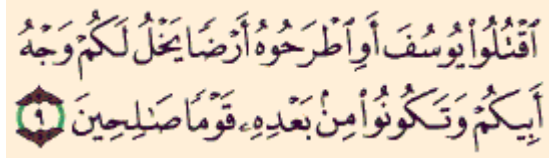 ٱقْتُلُوا۟ يُوسُفَ أَوِ ٱطْرَحُوهُ أَرْضًا يَخْلُ لَكُمْ وَجْهُ
أَبِيكُمْ وَتَكُونُوا۟ مِنۢ بَعْدِهِۦ قَوْمًا صَـٰلِحِينَ ٩